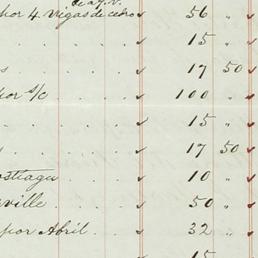 por 4 Vigas de cedro ✓ 56 "
. . . ✓ 15 "
s . . . ✓ 17 50
por s/c ✓ 100 "
. . . ✓ 15 "
. . . ✓ 17 50
✓ 10 "
ville . . ✓ 50 "
por Abril . . ✓ 32 "
15